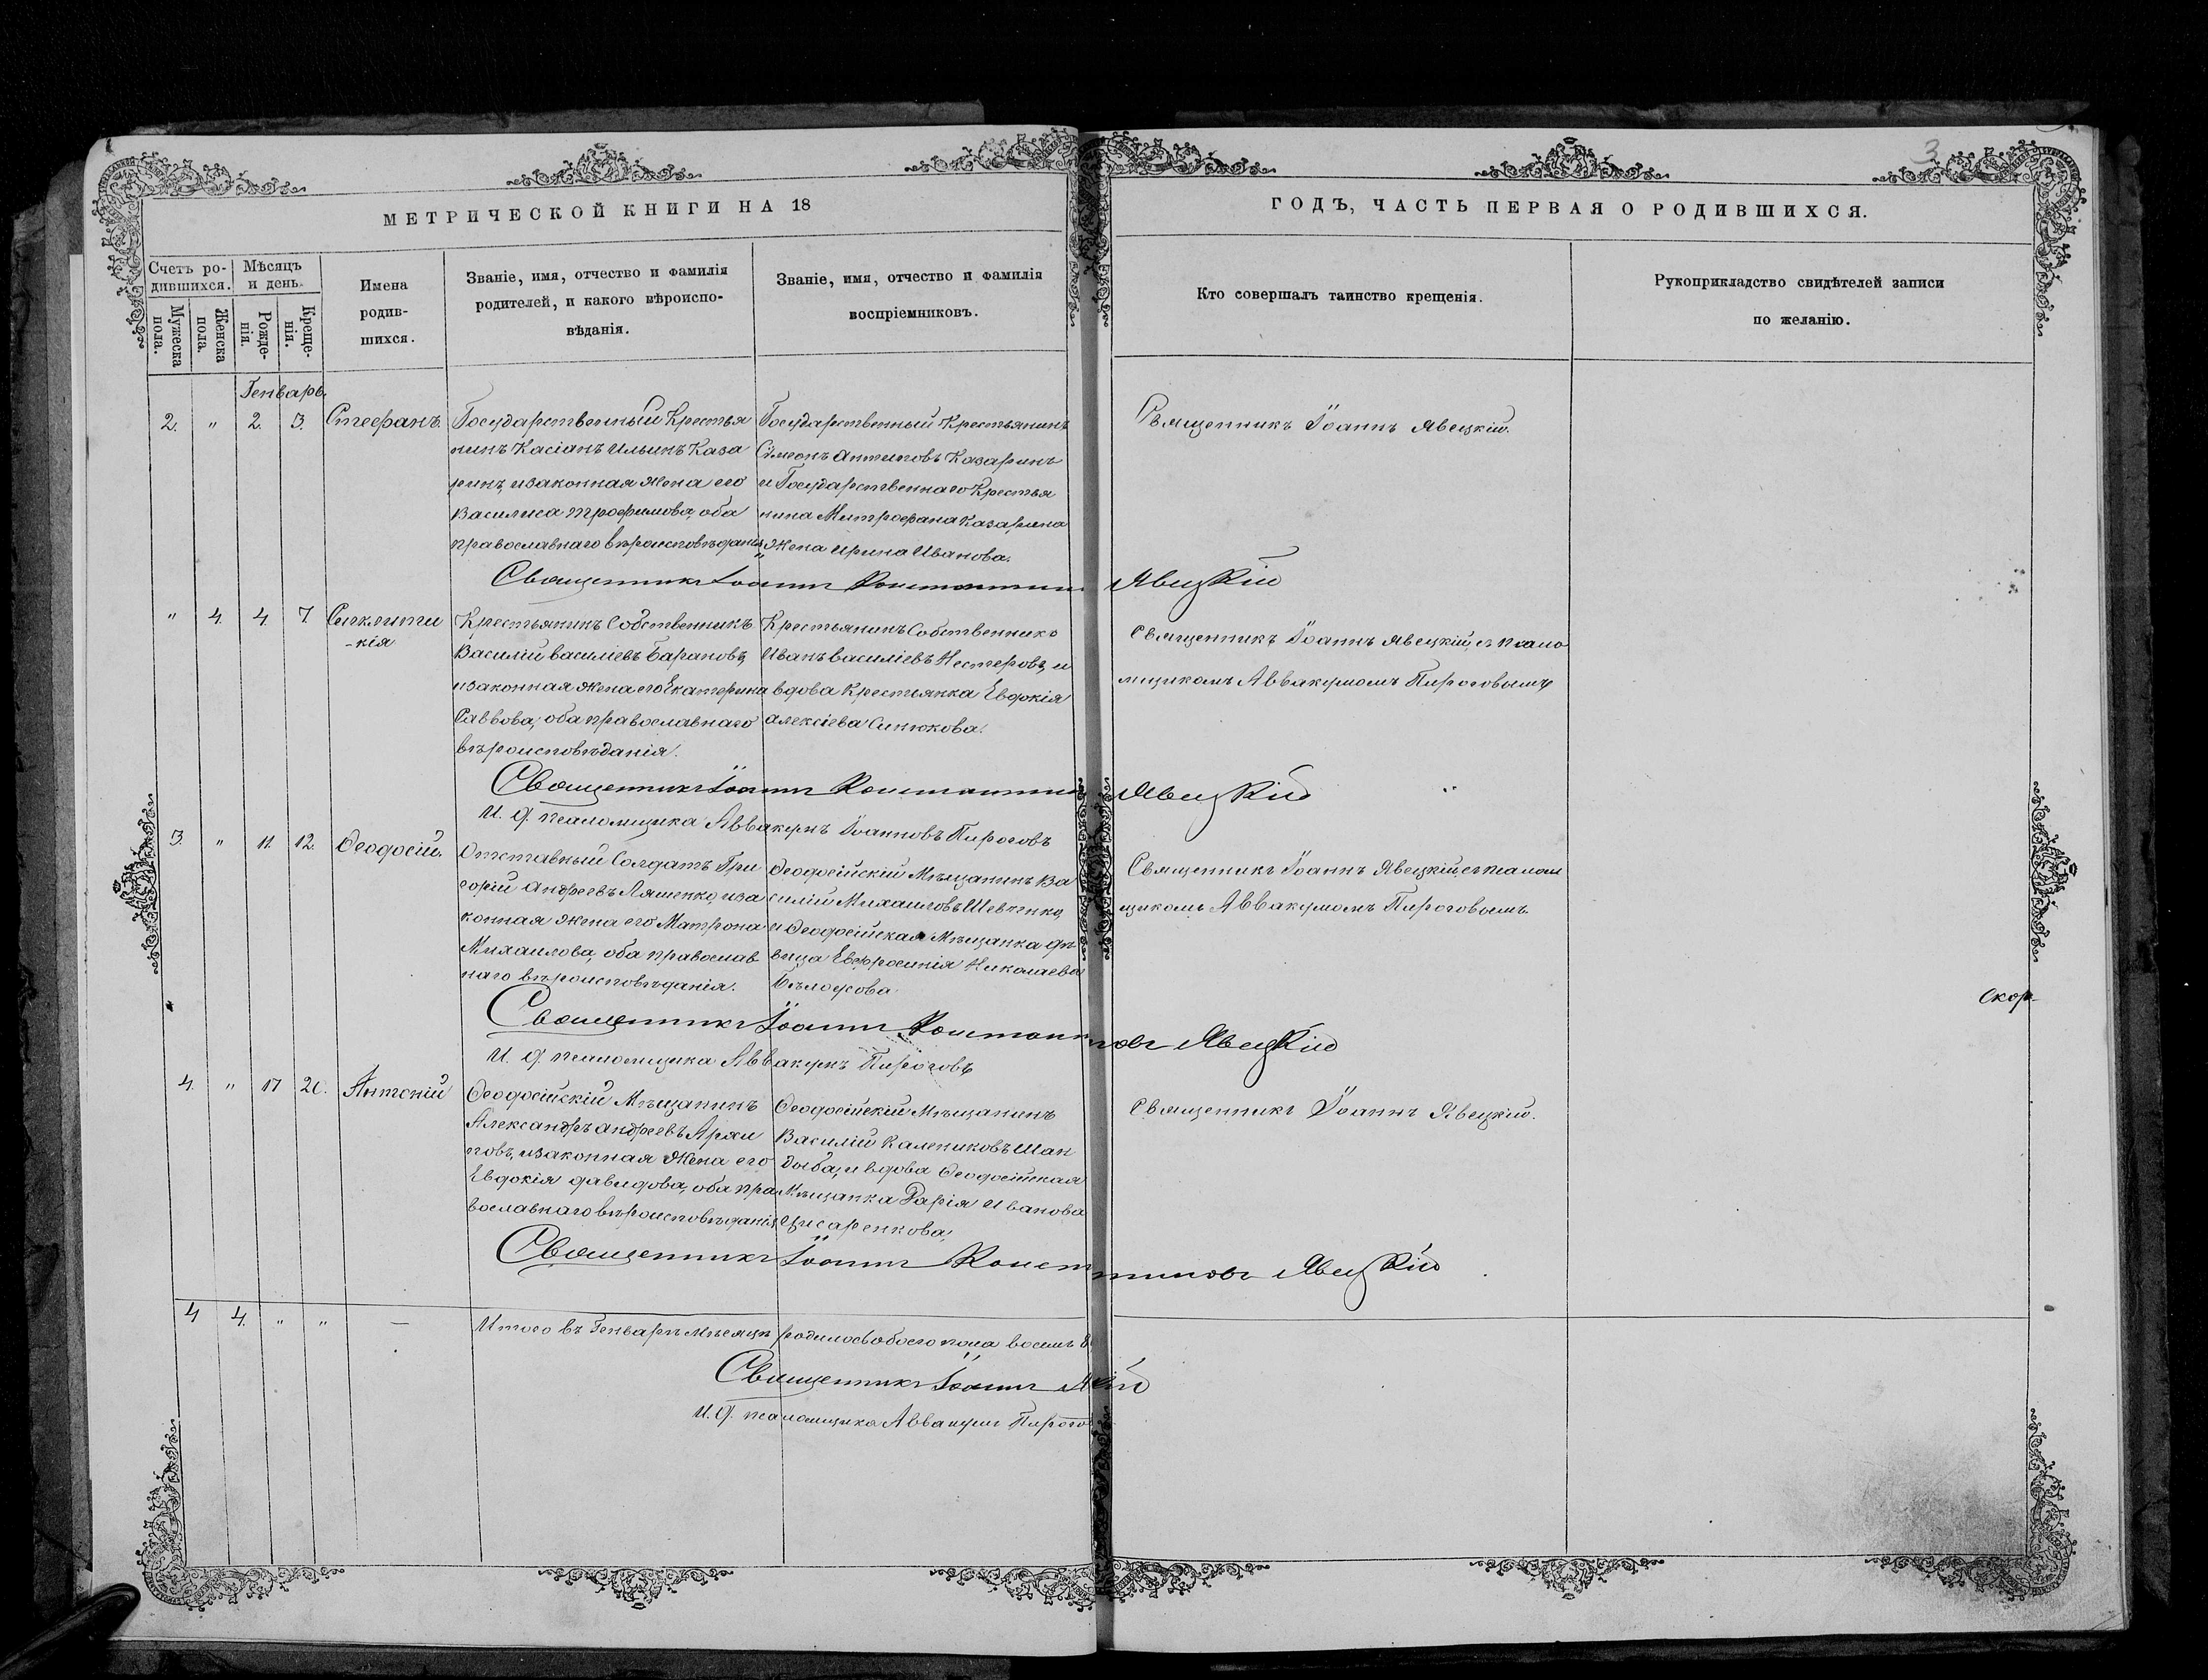 3
МЕТРИЧЕСКОЙ КНИГИ НА 18
ГОДЪ, ЧАСТЬ ПЕРВАЯ О РОДИВШИХСЯ.
Счетъ ро-
дившихся.
Мужеска
пола.
Женска
пола.
Мѣсяцъ
и день.
Рожде-
нія.
Креще-
нія.
Имена
родив-
шихся.
Званіе, имя, отчество и фамилія
родителей, и какого вѣроиспо-
вѣданія.
Званіе, имя, отчество и фамилія
воспріемниковъ.
Кто совершалъ таинство крещенія.
Рукоприкладство свидѣтелей записи
по желанію.
Генварь.
2. " 2. 3. Стефанъ.
Государственный Крестья
нинъ Касіанъ Ильинъ Каза
ринъ, и законная жена его
Василиса Трофимова, оба
православнаго вѣроисповѣданія
Государственный Крестьянинъ
Симеонъ Антиповъ Казаринъ
и Государственнаго Крестья
нина Митрофана Казарина
жена Ирина Иванова.
Священникъ Іоаннъ Явецкій.
Священникъ Іоаннъ Константин Явецкій
" 4. 4. 7. Синклити
-кія
Крестьянинъ Собственникъ
Василій Василіевъ Барановъ,
и законная жена его Екатерина
Саввова, оба православнаго
вѣроисповѣданія.
Крестьянинъ Собственникъ
Иванъ Василіевъ Нестеровъ, и
вдова Крестьянка Евдокія
Алексіева Синюкова.
Священникъ Іоаннъ Явецкій, съ псало
мщикомъ Аввакумомъ Пироговымъ
Священникъ Іоаннъ Константин Явецкій
И. д. псаломщика Аввакумъ Іоанновъ Пироговъ
3. " 11. 12. Ѳеодосій.
Отставный Солдатъ Гри
горій Андреевъ Ляшенко, и за
конная жена его Матрона
Михаилова, оба православ
наго вѣроисповѣданія.
Ѳеодосійскій Мѣщанинъ Ва
силій Михаиловъ Шевченко,
и Ѳеодосійская Мѣщанка дѣ
вица Евфросинія Николаева
Бѣлоусова.
Священникъ Іоаннъ Явецкій, съ псалом
щикомъ Аввакумомъ Пироговымъ.
Скор
Священникъ Іоаннъ Константиновъ Явецкій
И. д. псаломщика Аввакумъ Пироговъ
4. " 17 20. Антоній
Ѳеодосійскій Мѣщанинъ
Александръ Андреевъ
и законная жена его
Евдокія Давидова, оба пра
вославнаго вѣроисповѣданія
Ѳеодосійскій Мѣщанинъ
Василій Калениковъ Шан
дыба, и вдова Ѳеодосійская
Мѣщанка Дарія Иванова
Священникъ Іоаннъ Явецкій.
Священникъ Іоаннъ Констнтиновъ Явецкій
4 4. " " —
Итого въ Генварѣ мѣсяцѣ родилось обоего пола восемь 8
Священникъ Іоаннъ
И. д. псаломщика Аввакумъ Пирого